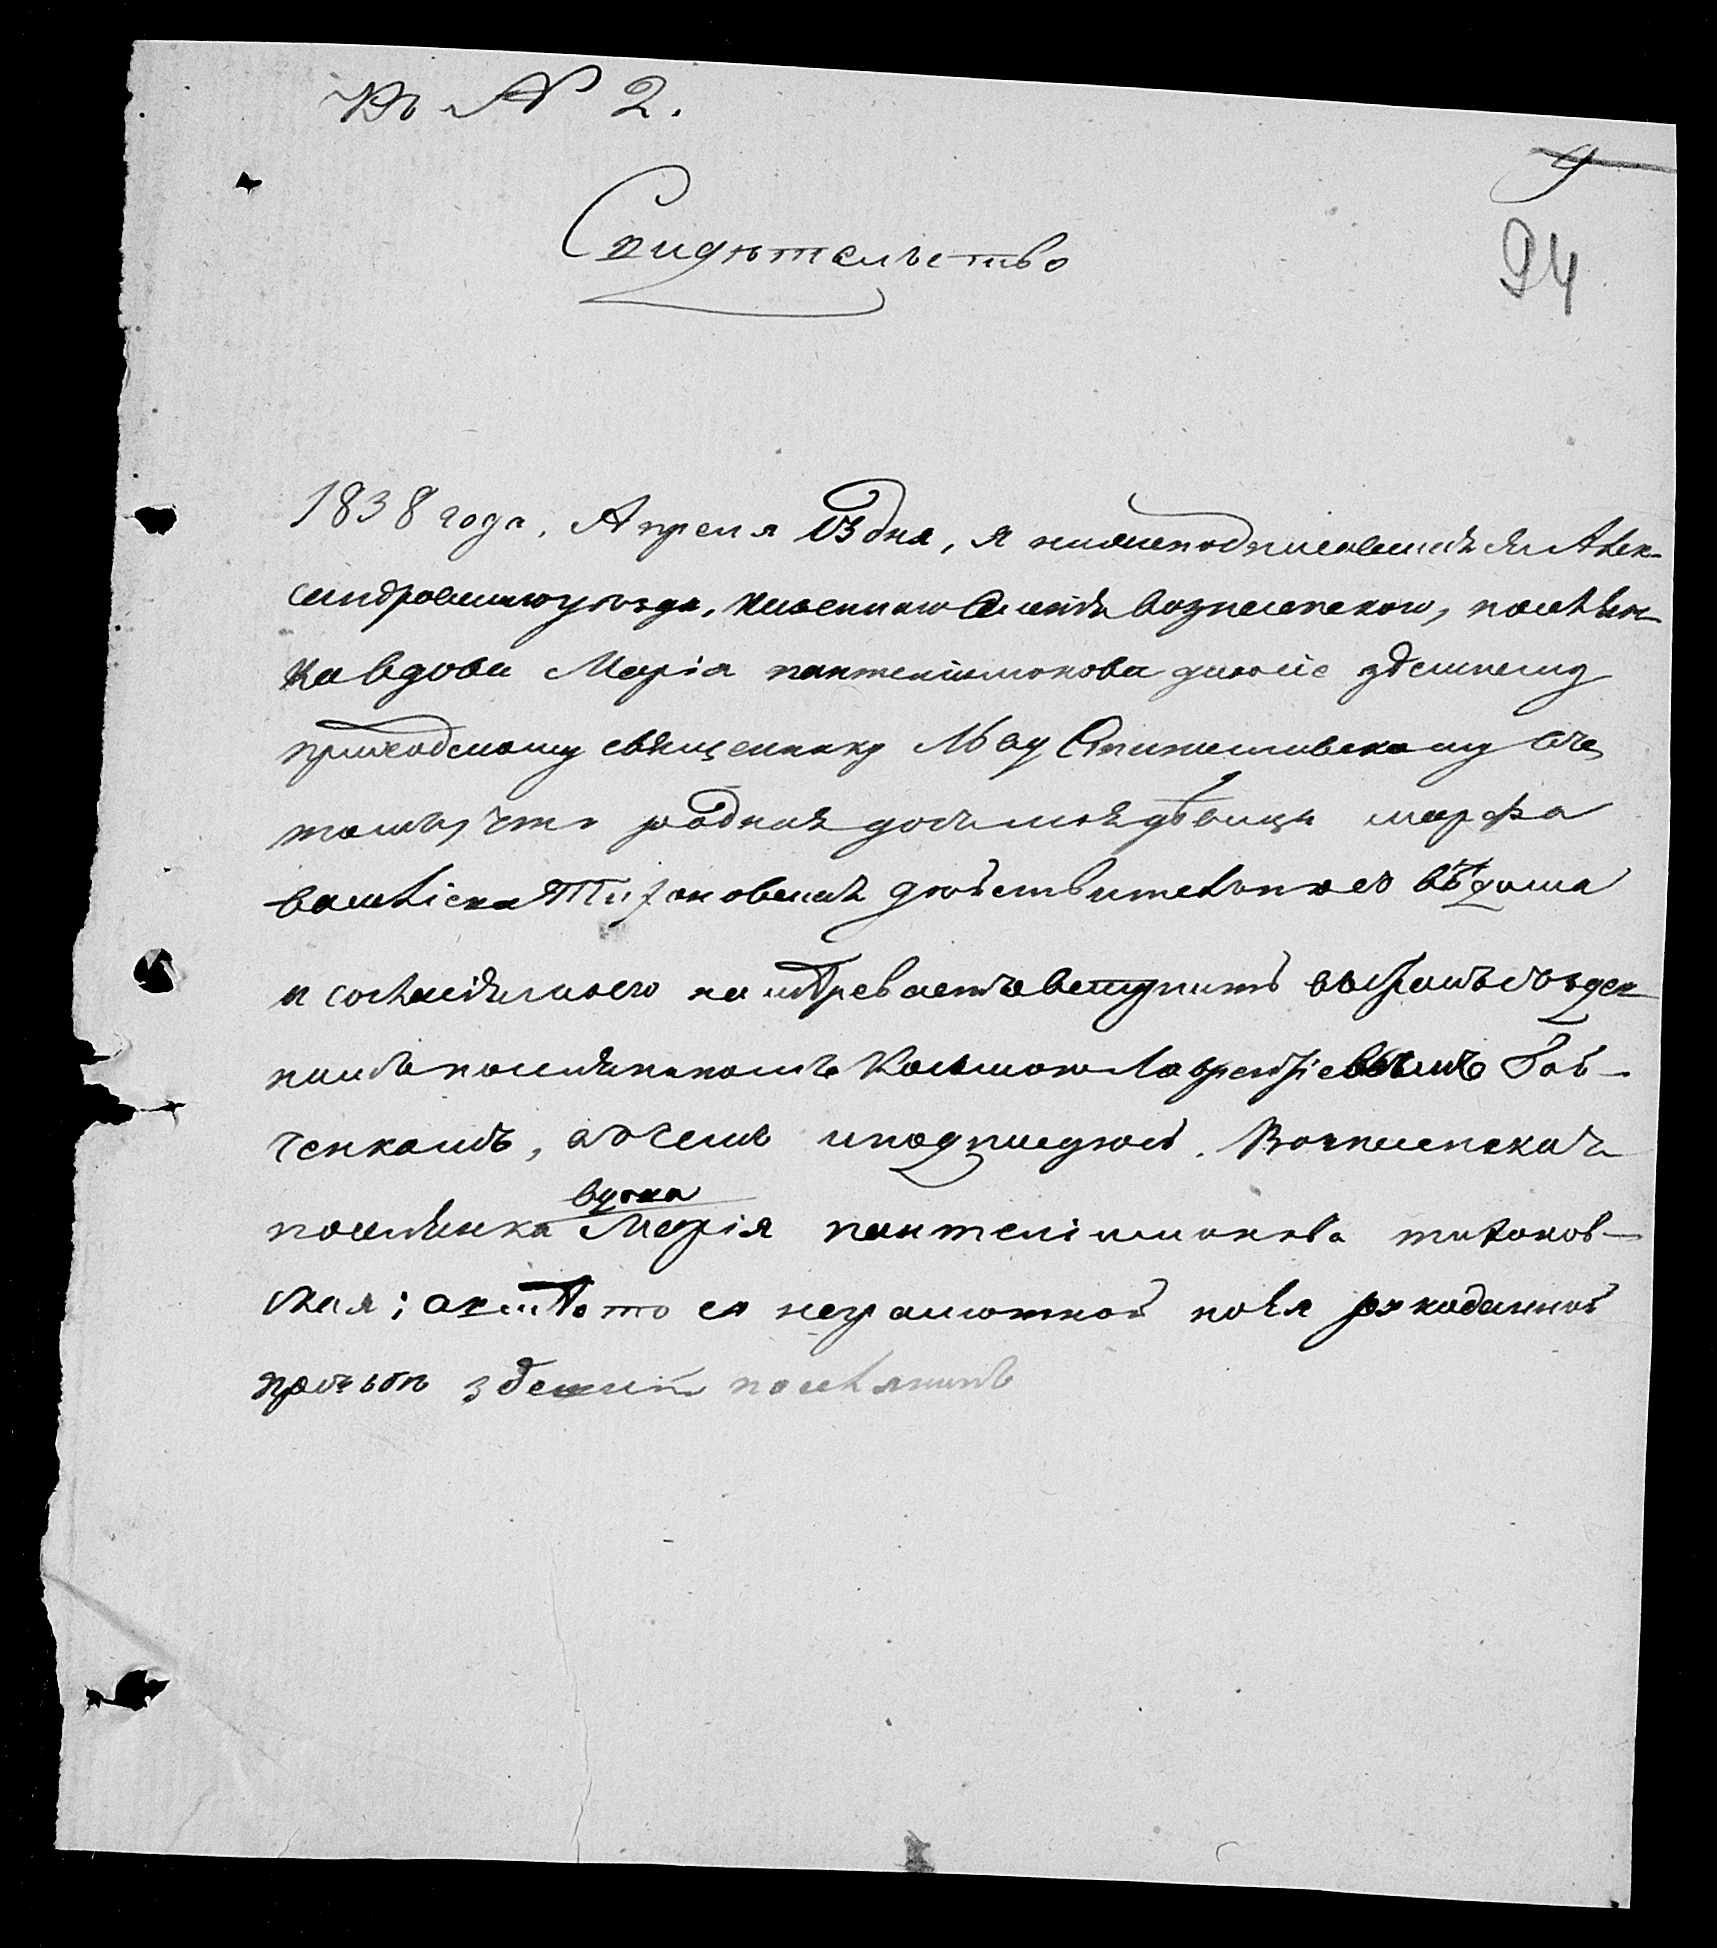 Къ № 2.
9
94
Свидѣтельство
1838 года, Апреля 13 дня, я нижеподписавшаяся Алек-
сандровскаго уѣзда, казеннаго Селенія вознесенскаго, поселян-
ка вдова Марія пантелімонова даю сіе здешнему
приходскому священнику въ
томъ, что родная дочь моя дѣвица марфа
василіева Тихановская дѣйствительно съ вѣдома
и согласія моего намѣреваетъ вступить въ бракъ съ здеш-
нимъ поселяниномъ Козьмою Лаврентіевымъ Бов-
ченкомъ, въ чемъ и подписуюсь. Вознесенская
вдова
поселянка Марія пантеліимонова тихонов-
ская; а вмѣсто ея неграмотной по ея рукоданной
прозьбѣ здешній поселянинъ